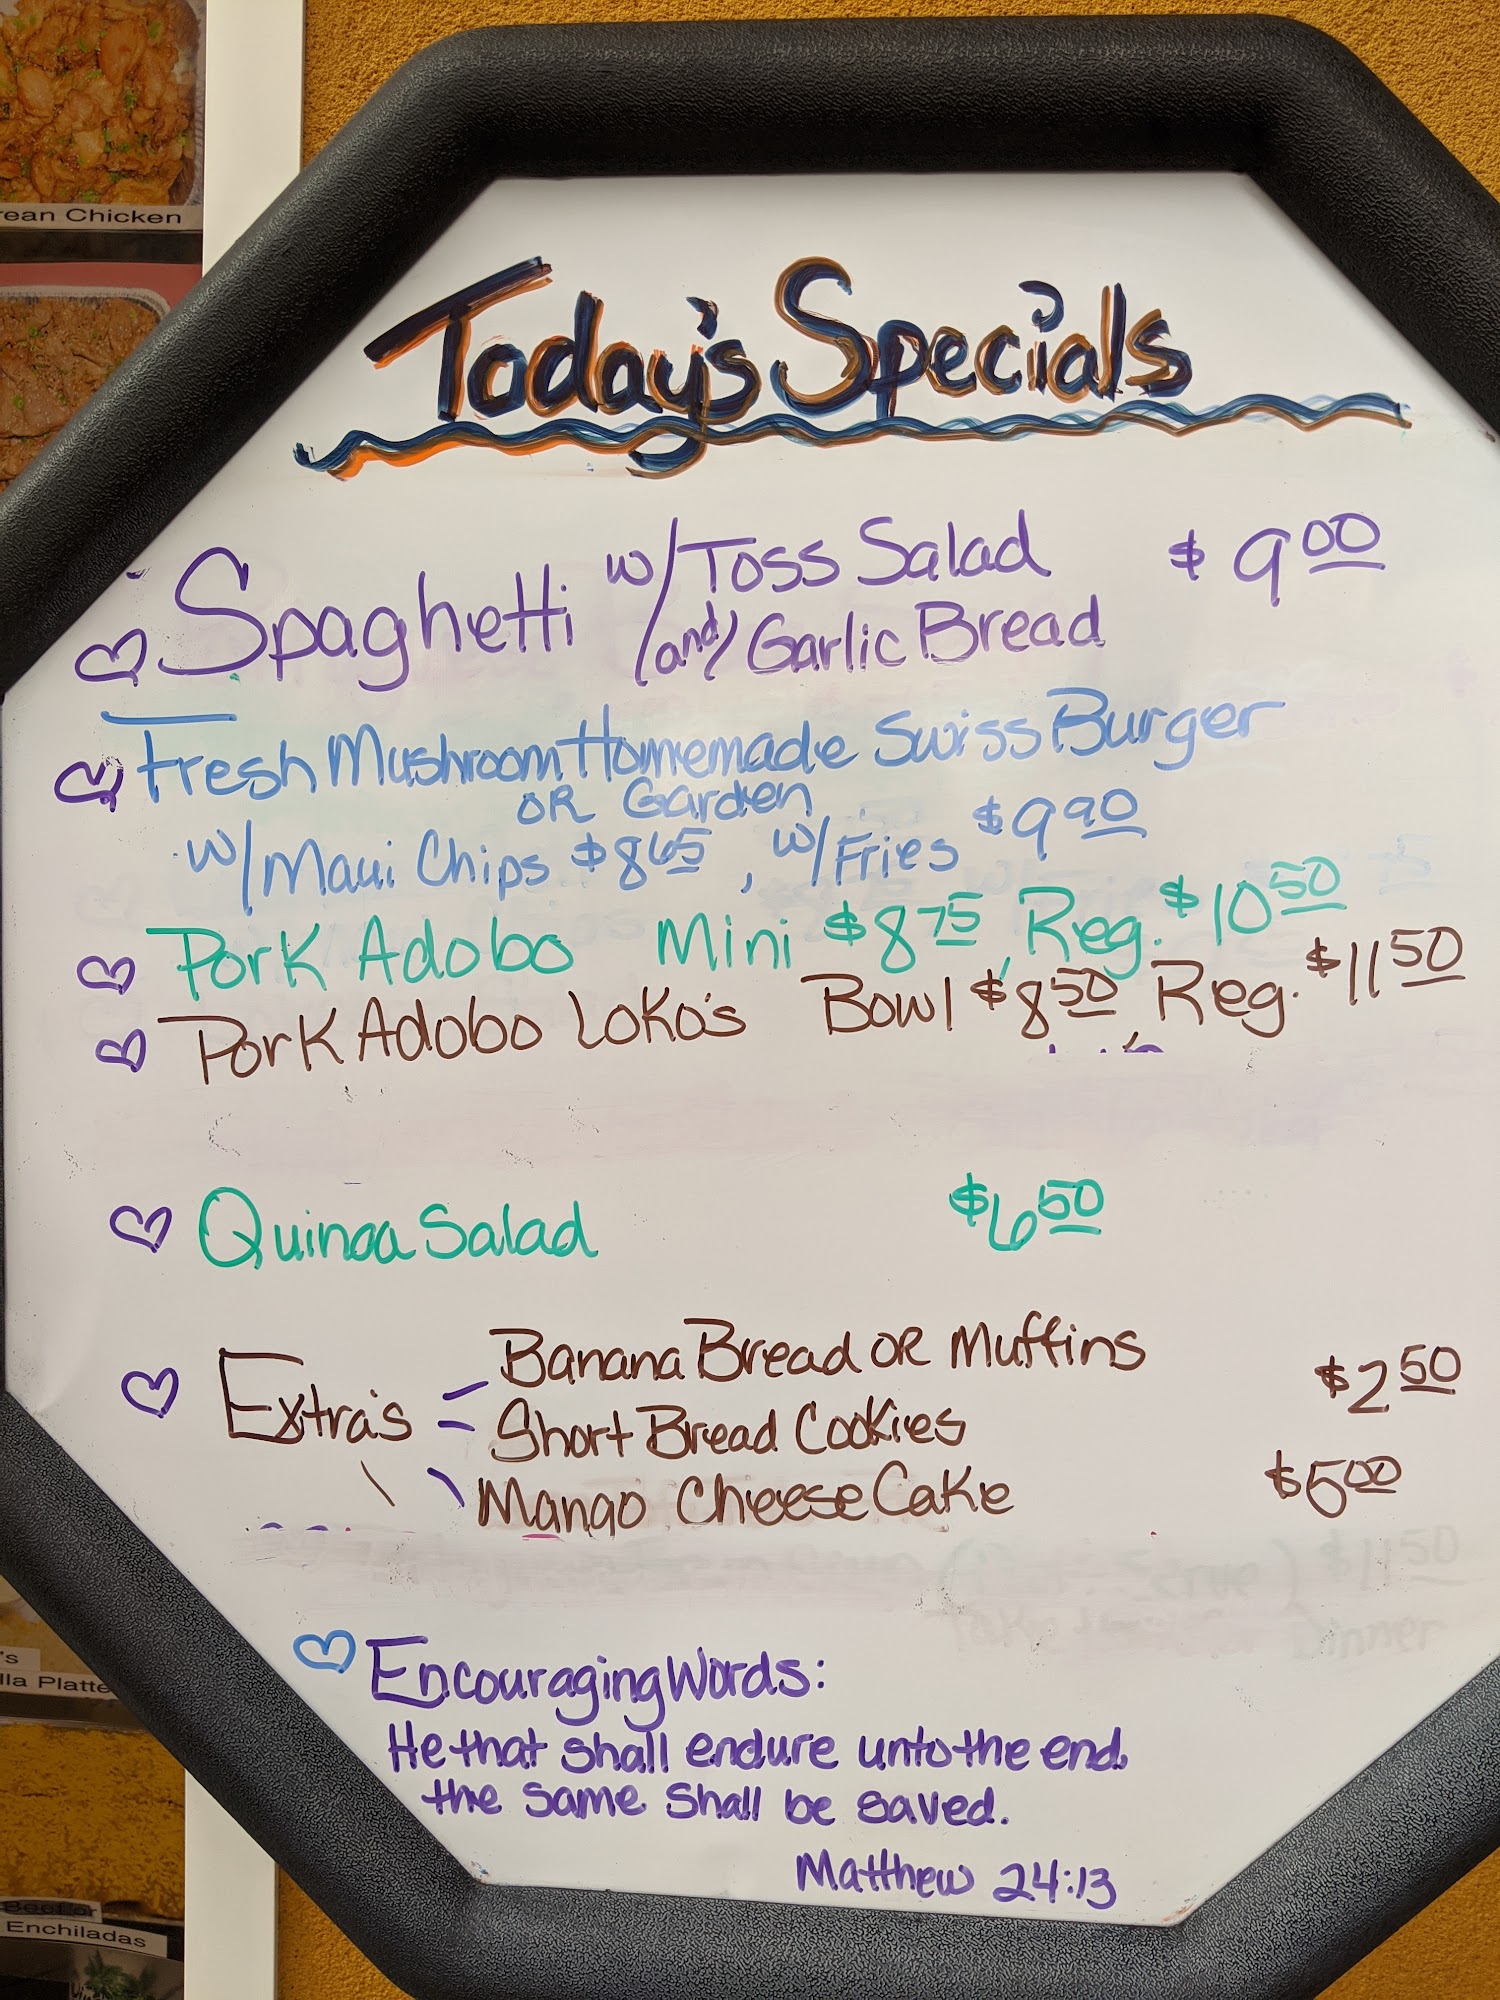 rean Chicken
Today's Specials
Spaghetti w/Toss Salad $9.00
/and/ Garlic Bread
Fresh Mushroom Homemade Swiss Burger
OR Garden
w/Maui Chips $8.65, w/Fries $9.90
Pork Adobo Mini $8.75, Reg. $10.50
Pork Adobo Loko's Bowl $8.50, Reg. $11.50
Quinoa Salad $6.50
Banana Bread OR Muffins
Extra's = Short Bread Cookies $2.50
Mango Cheese Cake $5.00
$11.50
Dinner
Encouraging Words:
He that shall endure unto the end,
the same shall be saved.
Matthew 24:13
's
lla Platte
Beef or
Enchiladas